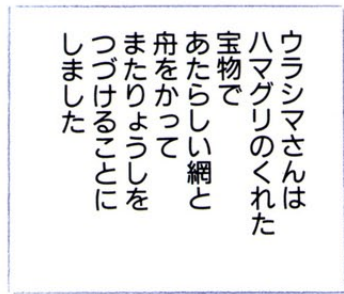 ウラシマさんは
ハマグリのくれた
宝物で
あたらしい網と
舟をかって
またりょうしを
つづけることに
しました